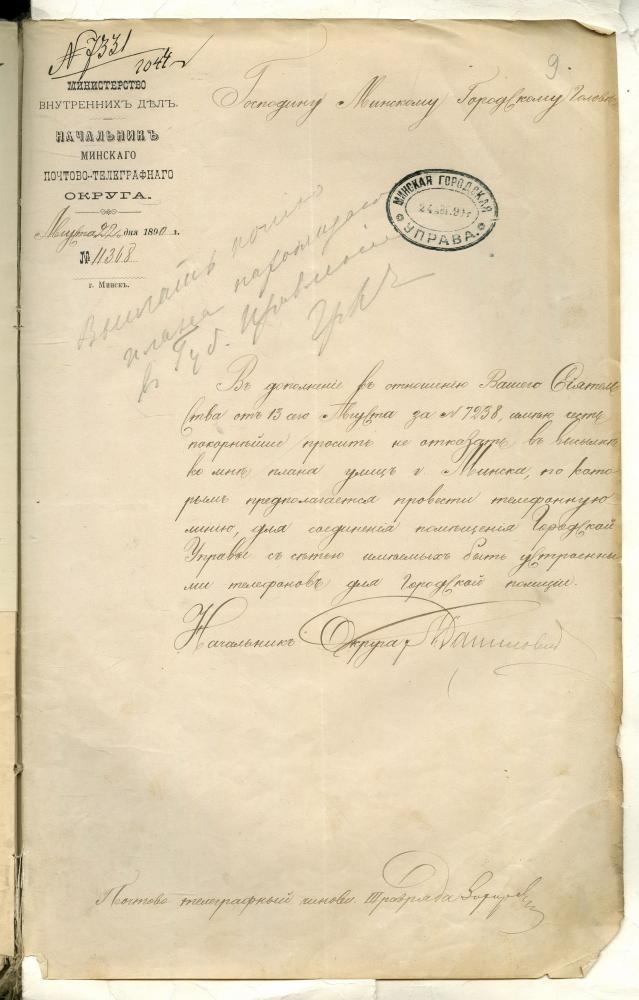 № 7331
2044
9
МИНИСТЕРСТВО
ВНУТРЕННИХЪ ДѢЛЪ.
НАЧАЛЬНИКЪ
МИНСКАГО
ПОЧТОВО-ТЕЛЕГРАФНАГО
ОКРУГА.
Августа 22 дня 1890 г.
№ 11368
г. Минскъ.
Господину Минскому Городскому Головѣ
МИНСКАЯ ГОРОДСКАЯ
24
УПРАВА.
Выслать копію
плана
въ Губ. Правленіе
Въ дополненіе къ отношенію Вашего Сіятель
ства отъ 13 сего Августа за № 7238, имѣю честь
покорнѣйше просить не отказать въ высылкѣ
ко мнѣ плана улицъ г. Минска, по кото-
рымъ предполагается провести телефонную
линію, для соединенія помѣщенія Городской
Управы съ сѣтью имѣемыхъ быть устроенны
ми телефоновъ для Городской полиціи.
Начальникъ Округа
Почтово телеграфный чиновн. III разряда